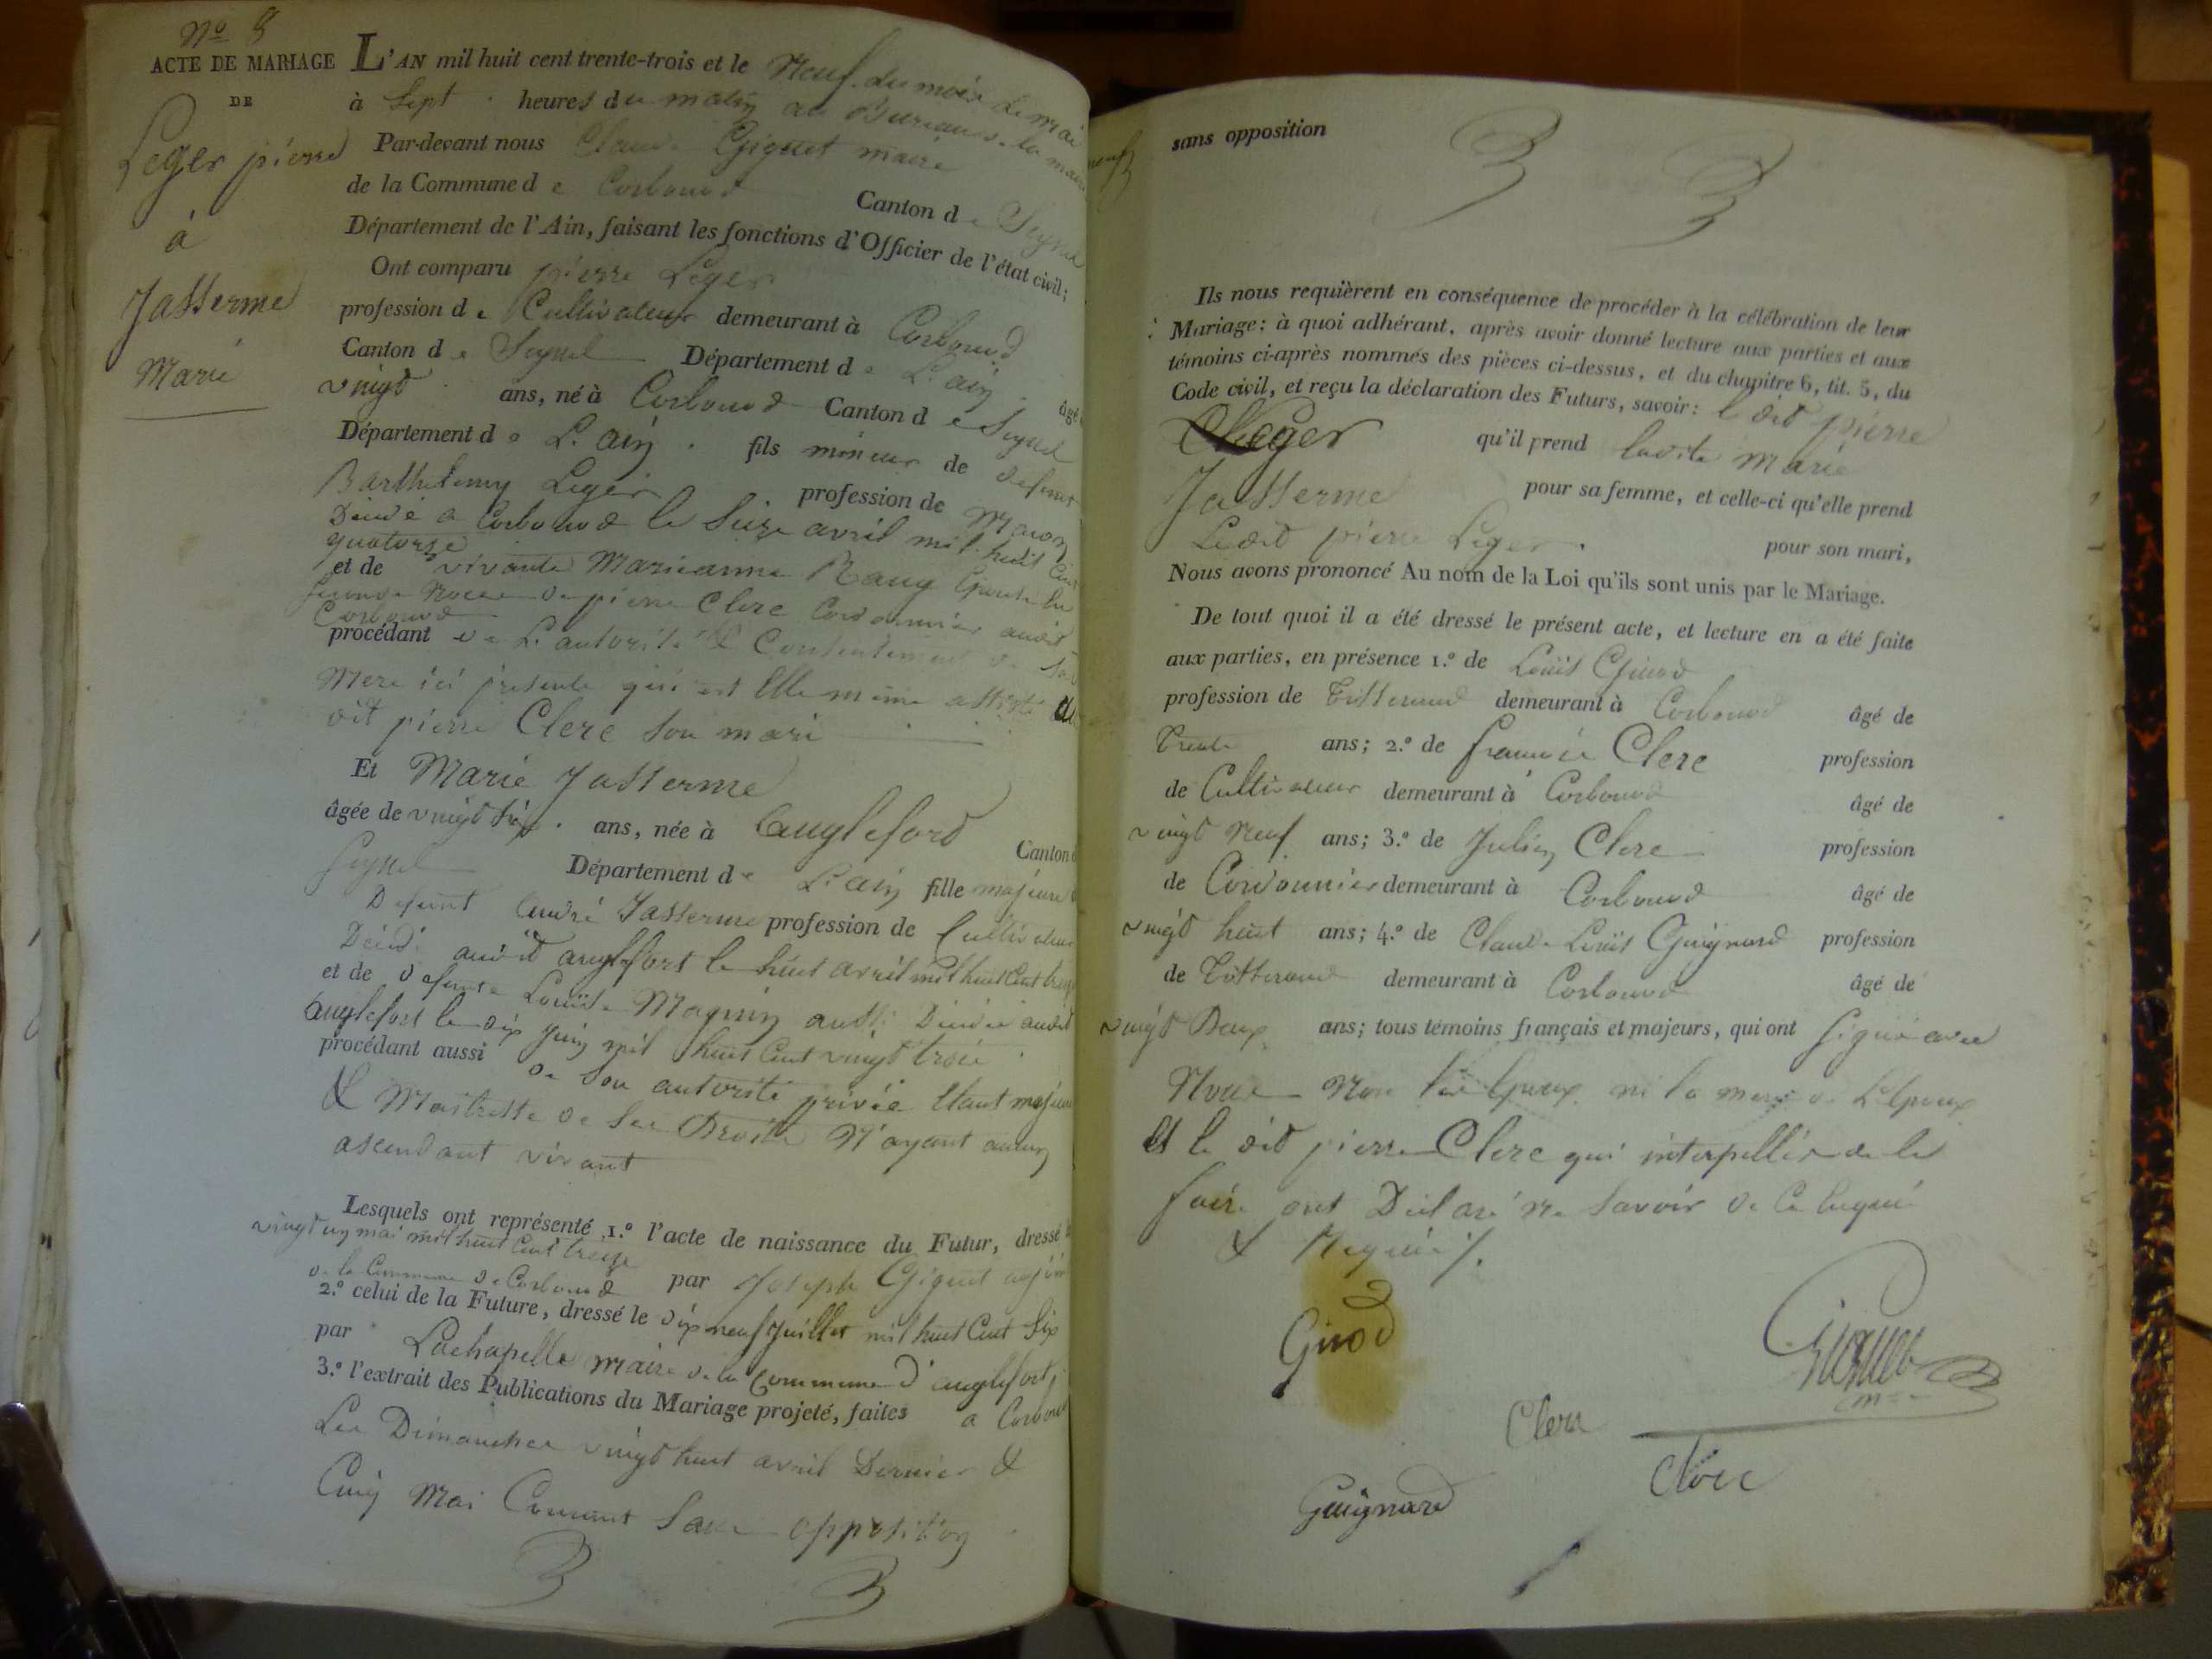 No 8
ACTE DE MARIAGE
DE
Leger pierre
à
Jasserme
Marie
L'AN mil huit cent trente-trois et le Neuf du mois de mai
à Sept heures du matin au Bureau de la mairie
Par-devant nous Claude Giguet maire
de la Commune de Corbonod Canton de Seyssel
Département de l'Ain, faisant les fonctions d'Officier de l'état civil;
Ont comparu pierre Leger
profession de Cultivateur demeurant à Corbonod
Canton de Seyssel Département de L'ain âgé
vingt ans, né à Corbonod Canton de Seyssel
Département de L'ain fils mineur de defunt
Barthelemy Leger profession de Maçon
Décédé a Corbonod le Seize avril mil huit Cent
quatorze
et de vivante Marieanne Ravy Epouse en
Seconde Noces de pierre Clerc Cordonnier audit
Corbonod
procédant de L'autorité & Consentement de Sa
Mere ici presente qui est Elle meme assistée du
dit pierre Clerc Son mari
Et Marie Jasserme
âgée de vingt six ans, née à angleford Canton
Seyssel Département de L'ain fille majeure
Defunt André Jasserme profession de Cultivateur
Décédé audit anglefort le huit avril mil huit Cent treize
et de defunte Louise Magnin aussi Décédée audit
anglefort le dix juin mil huit Cent vingt trois
procédant aussi de Son autorité privée Etant majeure
& Maitresse de Ses Droits N'ayant aucun
ascendant vivant
Lesquels ont représenté 1.º l'acte de naissance du Futur, dressé
vingt un mai mil huit Cent treize
de la Commune de Corbonod par Joseph Giguet adjoint
2.º celui de la Future, dressé le dix neuf Juillet mil huit Cent Six
par Lachapelle maire de la Commune d'anglefort,
3.º l'extrait des Publications du Mariage projeté, faites a Corbonod
Les Dimanches vingt huit avril Dernier &
Cinq Mai Courant Sans opposition
sans opposition
Ils nous requièrent en conséquence de procéder à la célébration de leur
Mariage: à quoi adhérant, après avoir donné lecture aux parties et aux
témoins ci-après nommés des pièces ci-dessus, et du chapitre 6, tit. 5, du
Code civil, et reçu la déclaration des Futurs, savoir: le dit pierre
Leger qu'il prend ladite Marie
Jasserme pour sa femme, et celle-ci qu'elle prend
Ledit pierre Leger pour son mari,
Nous avons prononcé Au nom de la Loi qu'ils sont unis par le Mariage.
De tout quoi il a été dressé le présent acte, et lecture en a été faite
aux parties, en présence 1.º de Louis Girod
profession de Tisserand demeurant à Corbonod âgé de
Trente ans; 2.º de francois Clerc profession
de Cultivateur demeurant à Corbonod âgé de
vingt Neuf ans; 3.º de Julien Clerc profession
de Cordonnier demeurant à Corbonod âgé de
vingt huit ans; 4.º de Claude Louis Guignard profession
de Tisserand demeurant à Corbonod âgé de
vingt Deux ans; tous témoins français et majeurs, qui ont Signé avec
Nous Non les Epoux ni la mere de L'Epoux
Et le dit pierre Clerc qui interpellés de le
faire ont Declaré ne Savoir de Ce Enquis
& Requis
Girod
Giguet
Clerc
Clerc
Guignard